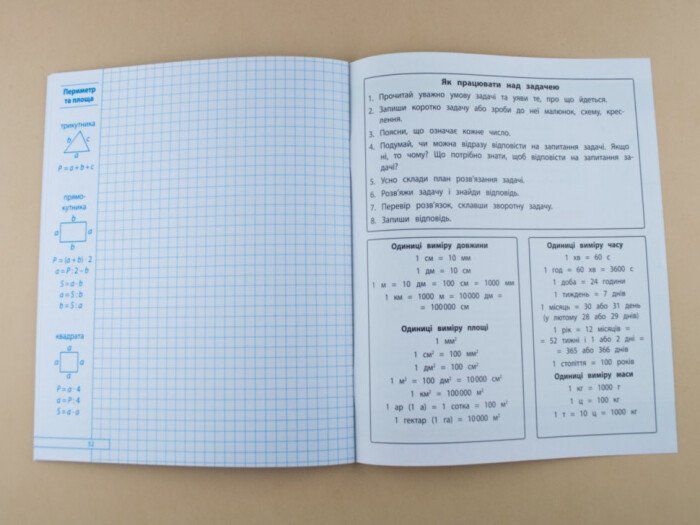 Периметр
та площа
трикутника
b c
a
P = a + b + c
прямо-
кутника
b
a a
b
P = (a + b) · 2
a = P : 2 − b
S = a · b
a = S : b
b = S : a
квадрата
a
a a
a
P = a · 4
a = P : 4
S = a · a
52
Як працювати над задачею
1. Прочитай уважно умову задачі та уяви те, про що йдеться.
2. Запиши коротко задачу або зроби до неї малюнок, схему, крес-
лення.
3. Поясни, що означає кожне число.
4. Подумай, чи можна відразу відповісти на запитання задачі. Якщо
ні, то чому? Що потрібно знати, щоб відповісти на запитання за-
дачі?
5. Усно склади план розв'язання задачі.
6. Розв'яжи задачу і знайди відповідь.
7. Перевір розв'язок, склавши зворотну задачу.
8. Запиши відповідь.
Одиниці виміру довжини
1 см = 10 мм
1 дм = 10 см
1 м = 10 дм = 100 см = 1000 мм
1 км = 1000 м = 10 000 дм =
= 100 000 см
Одиниці виміру площі
1 мм²
1 см² = 100 мм²
1 дм² = 100 см²
1 м² = 100 дм² = 10 000 см²
1 км² = 100 000 м²
1 ар (1 а) = 1 сотка = 100 м²
1 гектар (1 га) = 10 000 м²
Одиниці виміру часу
1 хв = 60 с
1 год = 60 хв = 3600 с
1 доба = 24 години
1 тиждень = 7 днів
1 місяць = 30 або 31 день
(у лютому 28 або 29 днів)
1 рік = 12 місяців =
= 52 тижні і 1 або 2 дні =
= 365 або 366 днів
1 століття = 100 років
Одиниці виміру маси
1 кг = 1000 г
1 ц = 100 кг
1 т = 10 ц = 1000 кг